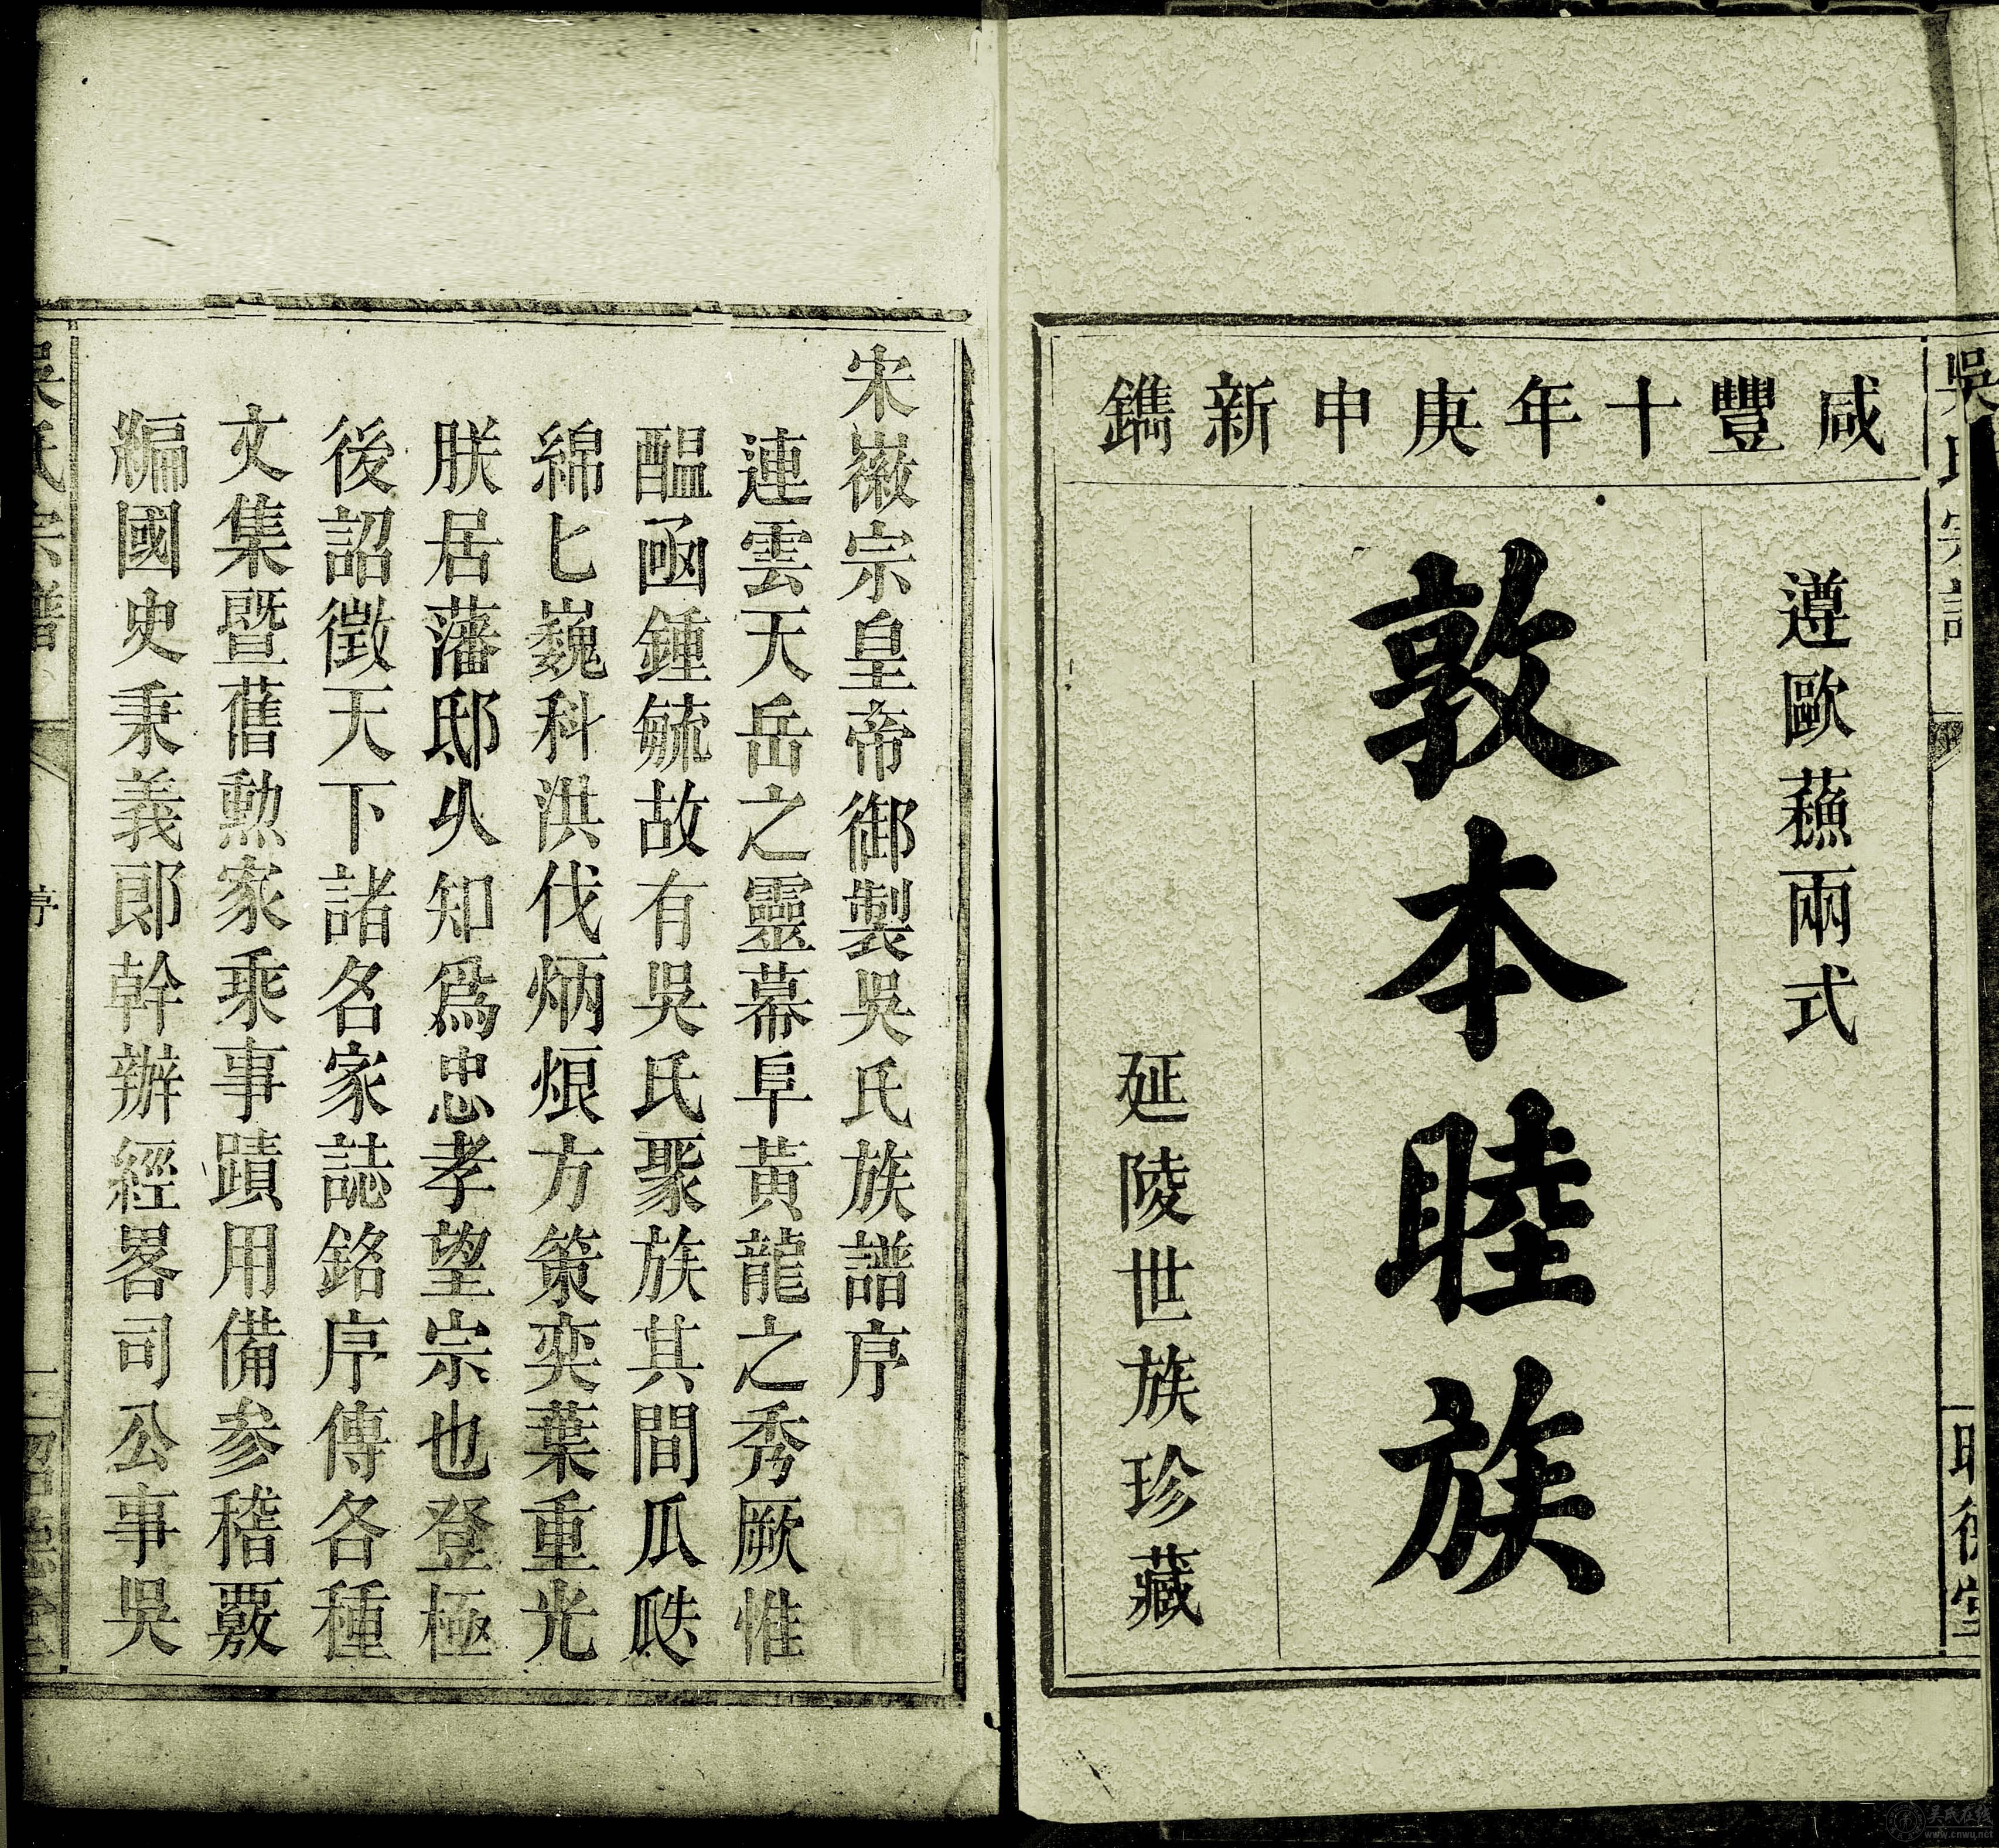 咸豐十年庚申新鐫
遵歐蘓兩式
敦本睦族
延陵世族珍藏
宋徽宗皇帝御製吳氏族譜序
連雲天岳之靈幕阜黃龍之秀厥惟
醞凾鍾毓故有吳氏聚族其間瓜瓞
綿匕巍科洪伐炳烺方策奕葉重光
朕居藩邸乆知爲忠孝望宗也登極
後詔徵天下諸名家誌銘序傳各種
文集曁舊勲家乘事蹟用備参稽覈
編國史秉義郎幹辦經畧司公事吳
吳氏在线
www.cnwu.net